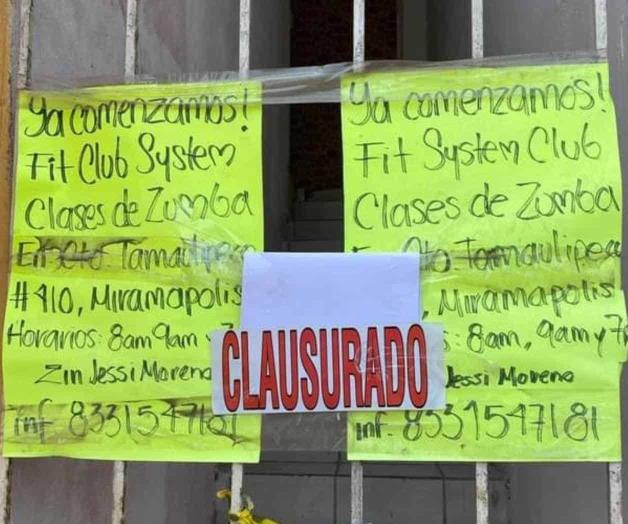 Ya comenzamos!
Fit Club System
Clases de Zumba
Tamaulipeco
#410, Miramapolis
Horarios: 8am 9am y 7
Zin Jessi Moreno
inf. 8331547181
Ya comenzamos!
Fit System Club
Clases de Zumba
Oto Tamaulipeco
, Miramapolis
s: 8am, 9am y 7
Jessi Moreno
inf. 8331547181
CLAUSURADO